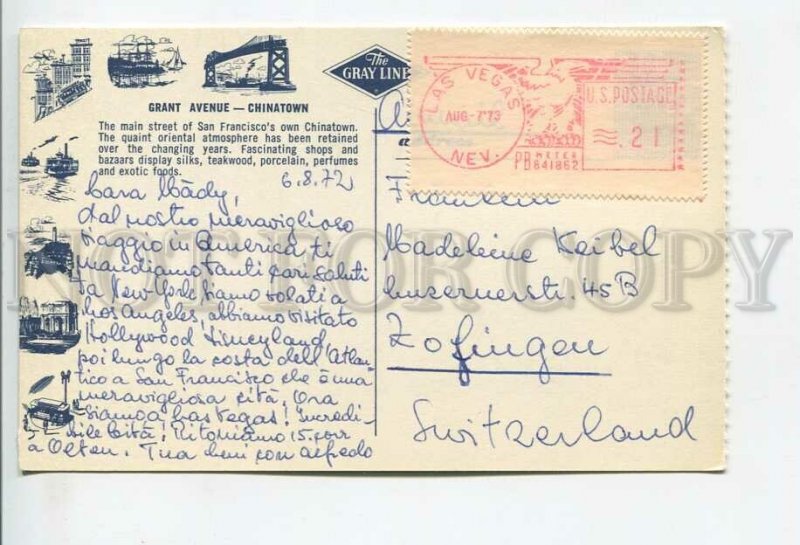 The
GRAY LINE
GRANT AVENUE — CHINATOWN
The main street of San Francisco's own Chinatown.
The quaint oriental atmosphere has been retained
over the changing years. Fascinating shops and
bazaars display silks, teakwood, porcelain, perfumes
and exotic foods.
6.8.72
Cara Mädy,
dal nostro meraviglioso
viaggio in America ti
mandiamo tanti cari saluti
Da New-York siamo volati a
Los Angeles, abbiamo visitato
Hollywood Disneyland,
poi lungo la costa dell'Atlan-
tico a San Francisco che è una
meravigliosa città. Ora
siamo a Las Vegas! Incredi-
bile città! Ritorniamo 15. corr
a Olten. Tua con Alfredo
LAS VEGAS
AUG-7'73
NEV.
U.S. POSTAGE
.21
PB METER
641862
Fräulein
Madeleine Keibel
Luzernerstr. 45B
Zofingen
Switzerland
NOT FOR COPY